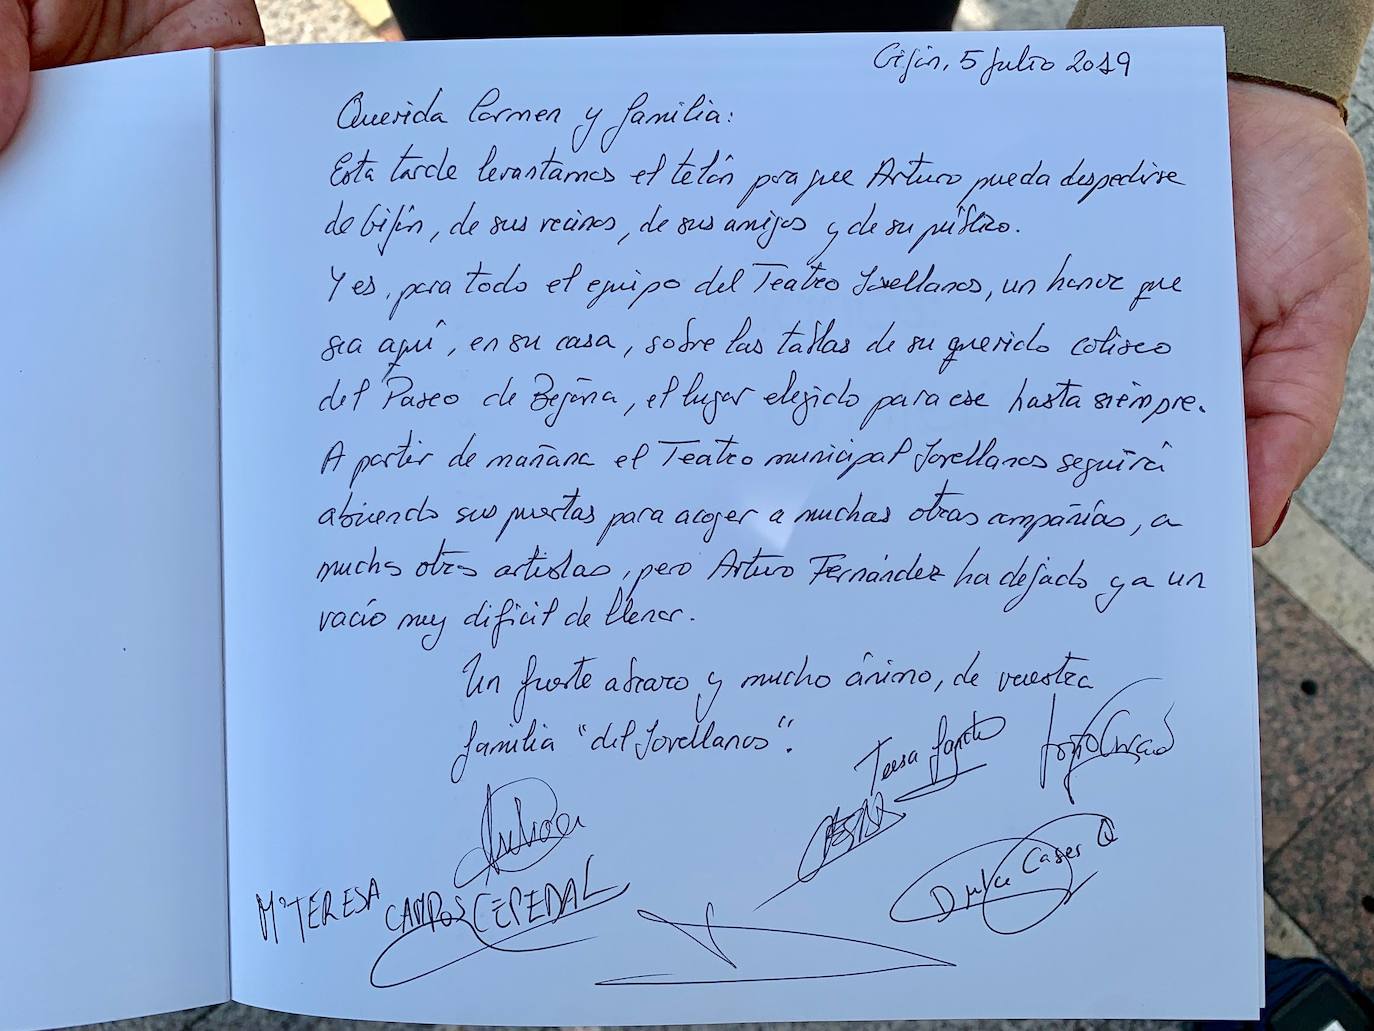 Gijón, 5 Julio 2019
Querida Carmen y familia:
Esta tarde levantamos el telón para que Arturo pueda despedirse
de Gijón, de sus vecinos, de sus amigos y de su público.
Y es, para todo el equipo del Teatro Jovellanos, un honor que
sea aquí, en su casa, sobre las tablas de su querido coliseo
del Paseo de Begoña, el lugar elegido para ese hasta siempre.
A partir de mañana el Teatro municipal Jovellanos seguirá
abriendo sus puertas para acoger a muchas otras compañías, a
muchos otros artistas, pero Arturo Fernández ha dejado ya un
vacío muy difícil de llenar.
Un fuerte abrazo y mucho ánimo, de vuestra
familia "del Jovellanos".
Teresa
Dulce
Mª TERESA CAMPOS CEPEDAL